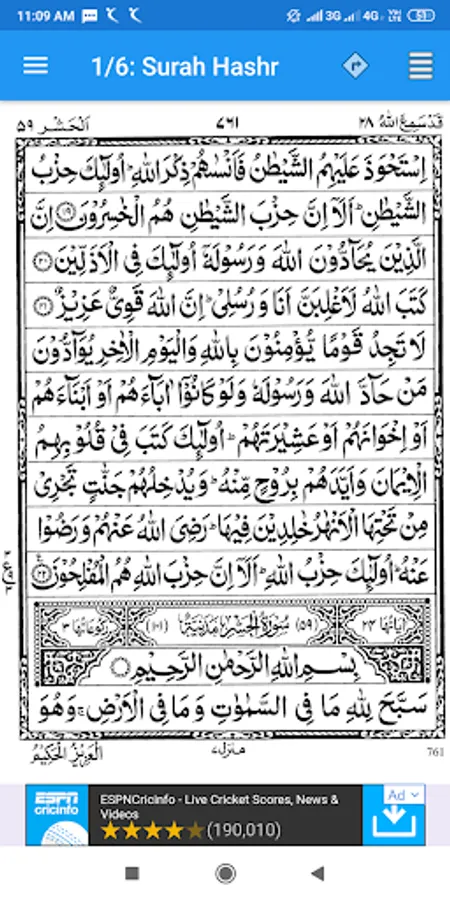 11:09 AM 3G 4G VoLTE 59
1/6: Surah Hashr
قَدْسَمِعَ اللهُ ٢٨ ٧٦١ اَلْحَشْر ٥٩
اِسْتَحْوَذَ عَلَيْهِمُ الشَّيْطٰنُ فَاَنْسٰىهُمْ ذِكْرَ اللهِ ؕ اُولٰٓئِكَ حِزْبُ
الشَّيْطٰنِ ؕ اَلَاۤ اِنَّ حِزْبَ الشَّيْطٰنِ هُمُ الْخٰسِرُوْنَ ﴿١٩﴾ اِنَّ
الَّذِيْنَ يُحَآدُّوْنَ اللهَ وَرَسُوْلَهٗۤ اُولٰٓئِكَ فِى الْاَذَلِّيْنَ ﴿٢٠﴾
كَتَبَ اللهُ لَاَغْلِبَنَّ اَنَا وَرُسُلِىْ ؕ اِنَّ اللهَ قَوِىٌّ عَزِيْزٌ ﴿٢١﴾
لَا تَجِدُ قَوْمًا يُّؤْمِنُوْنَ بِاللهِ وَالْيَوْمِ الْاٰخِرِ يُوَآدُّوْنَ
مَنْ حَآدَّ اللهَ وَرَسُوْلَهٗ وَلَوْ كَانُوْۤا اٰبَآءَهُمْ اَوْ اَبْنَآءَهُمْ
اَوْ اِخْوَانَهُمْ اَوْ عَشِيْرَتَهُمْ ؕ اُولٰٓئِكَ كَتَبَ فِىْ قُلُوْبِهِمُ
الْاِيْمَانَ وَاَيَّدَهُمْ بِرُوْحٍ مِّنْهُ ؕ وَيُدْخِلُهُمْ جَنّٰتٍ تَجْرِىْ
مِنْ تَحْتِهَا الْاَنْهٰرُ خٰلِدِيْنَ فِيْهَا ؕ رَضِىَ اللهُ عَنْهُمْ وَرَضُوْا
عَنْهُ ؕ اُولٰٓئِكَ حِزْبُ اللهِ ؕ اَلَاۤ اِنَّ حِزْبَ اللهِ هُمُ الْمُفْلِحُوْنَ ﴿٢٢﴾
اٰيَاتُهَا ٢٤ (٥٩) سُوْرَةُ الْحَشْرِ مَدَنِيَّةٌ (١٠١) رُكُوْعَاتُهَا ٣
بِسْمِ اللهِ الرَّحْمٰنِ الرَّحِيْمِ
سَبَّحَ لِلّٰهِ مَا فِى السَّمٰوٰتِ وَمَا فِى الْاَرْضِ ۚ وَهُوَ
الْعَزِيْزُ الْحَكِيْمُ منزل ٧ 761
ESPN cricinfo
ESPNCricinfo - Live Cricket Scores, News & Videos
(190,010)
Ad